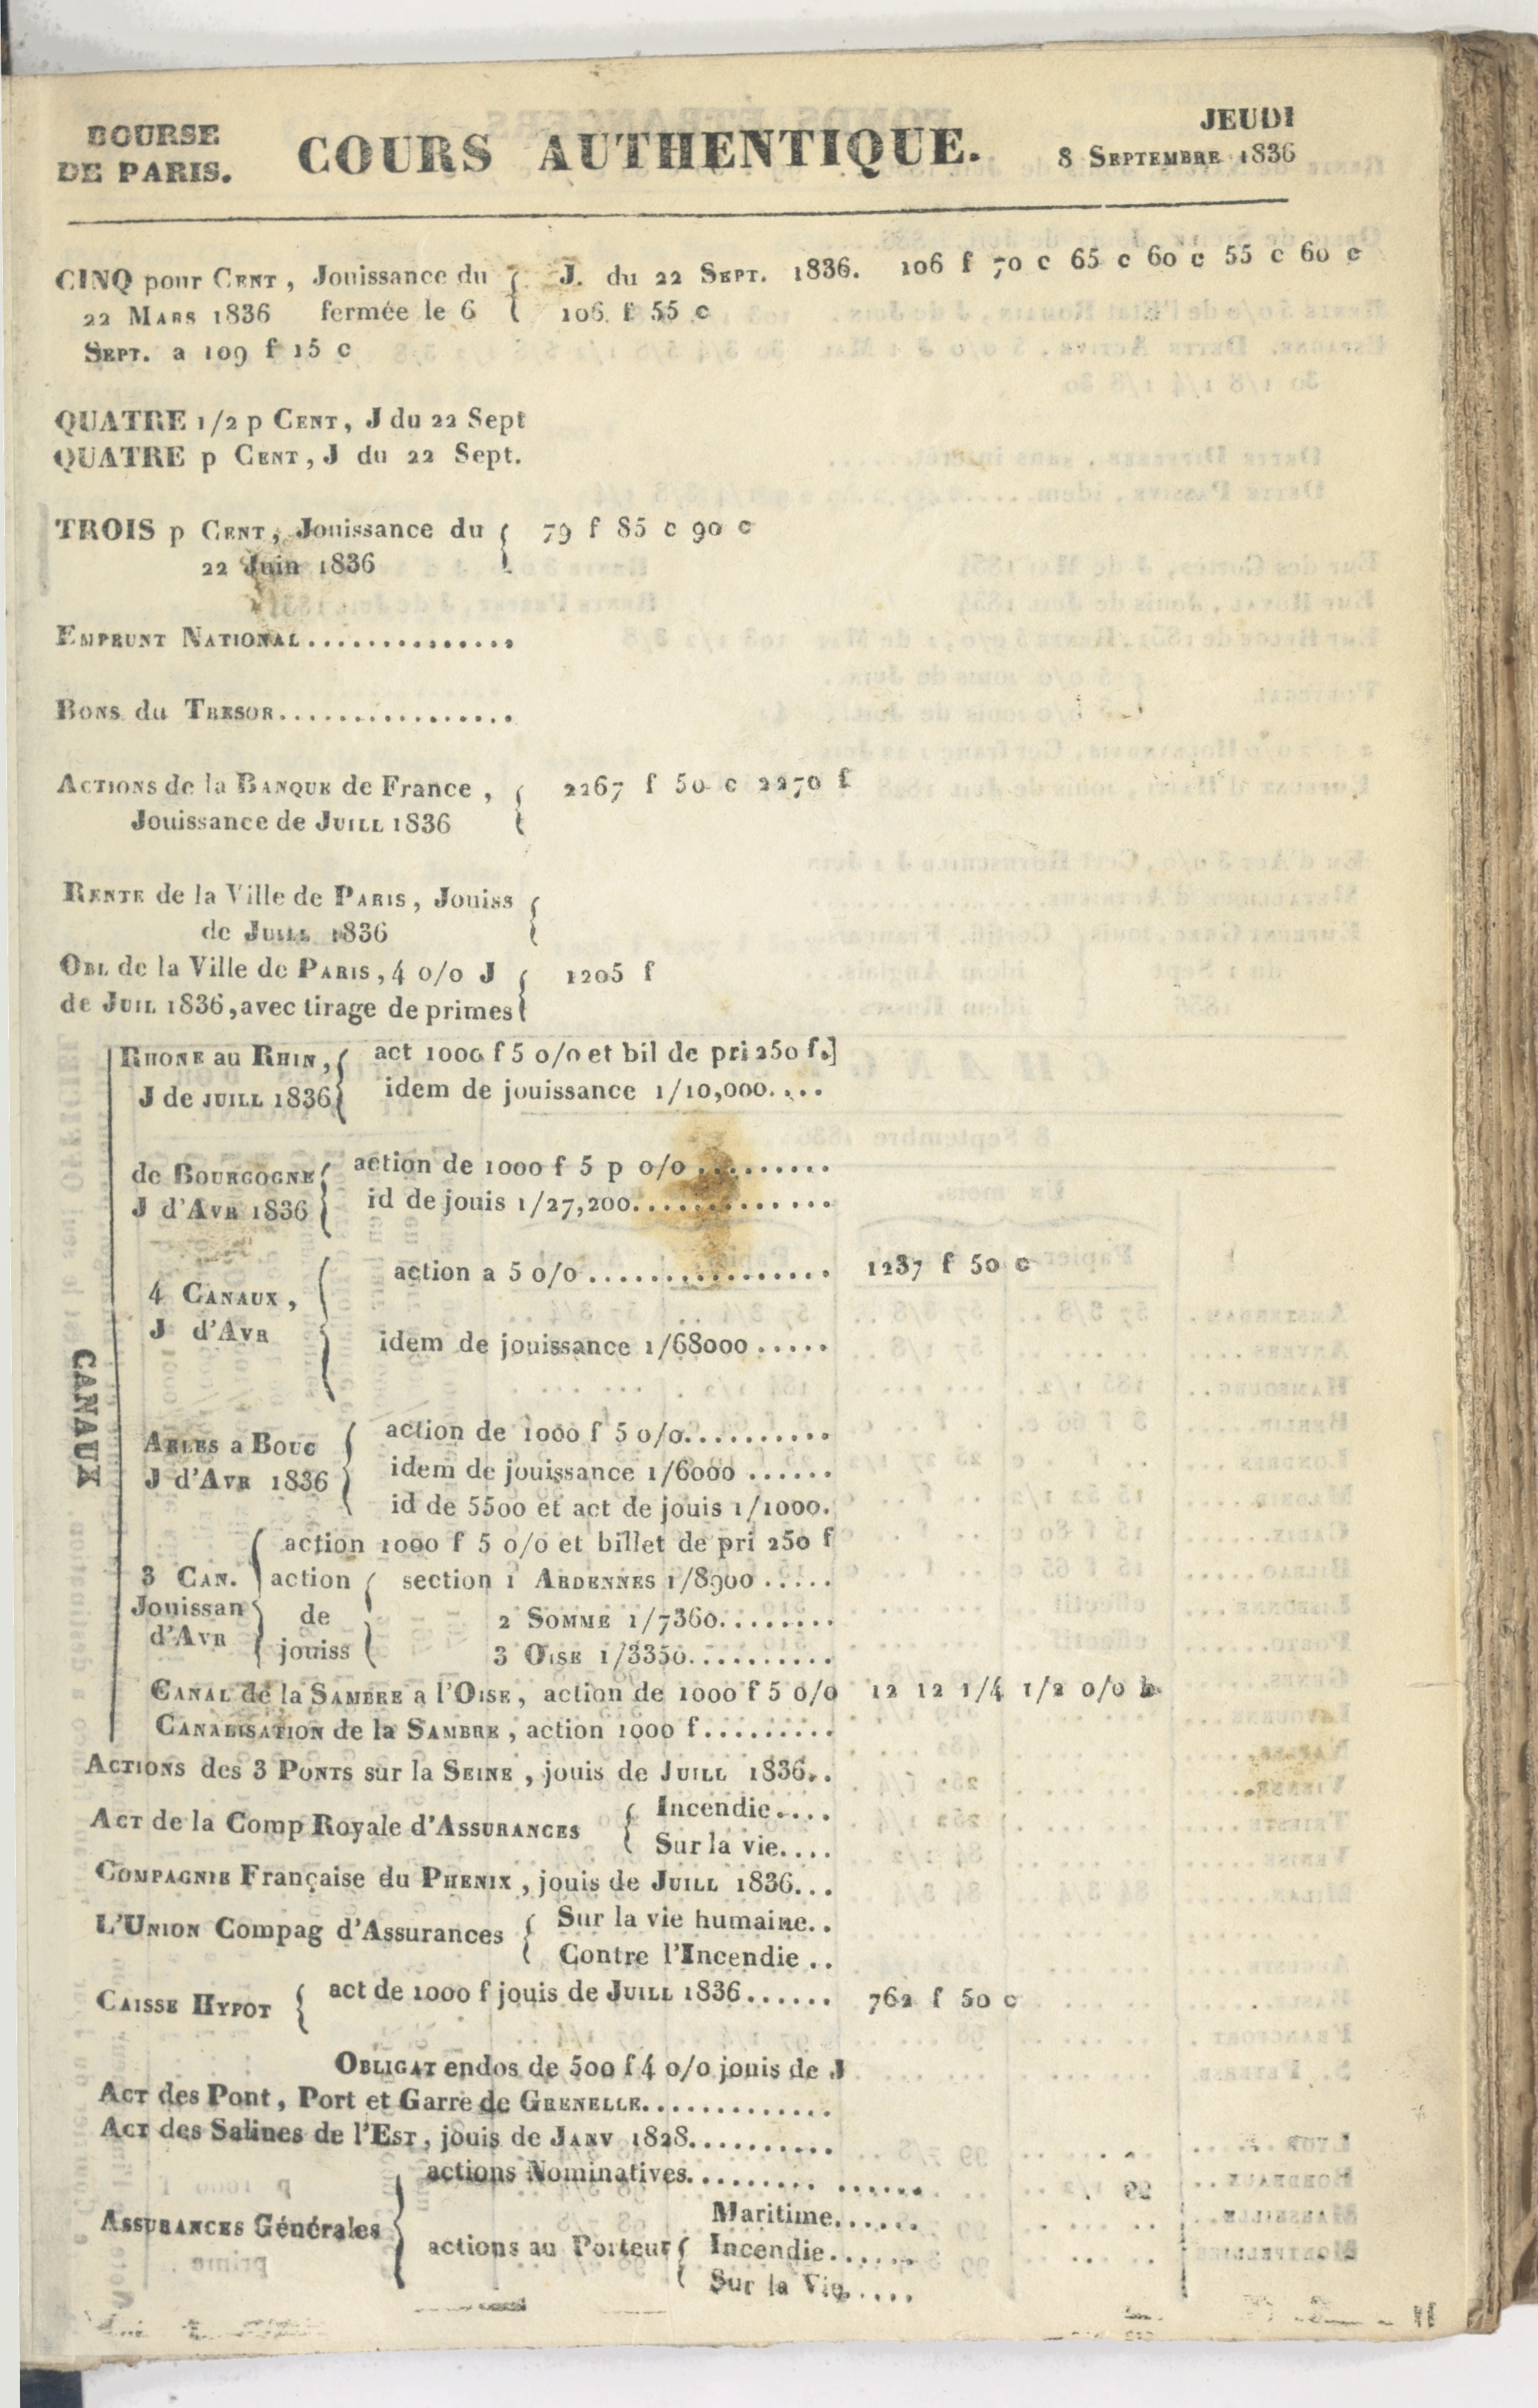 BOURSE
DE PARIS.
COURS AUTHENTIQUE.
JEUDI
8 SEPTEMBRE 1836
CINQ pour CENT, Jouissance du { J. du 22 SEPT. 1836. 106 f 70 c 65 c 60 c 55 c 60 c
22 MARS 1836 fermée le 6 106 f 55 c
SEPT. a 109 f 15 c
QUATRE 1/2 p CENT, J du 22 Sept
QUATRE p CENT, J du 22 Sept.
TROIS p CENT, Jouissance du { 79 f 85 c 90 c
22 Juin 1836
EMPRUNT NATIONAL..............
BONS du TRESOR................
ACTIONS de la BANQUE de France, { 2267 f 50 c 2270 f
Jouissance de JUILL 1836
RENTE de la Ville de PARIS, Jouiss {
de JUILL 1836
OBL de la Ville de PARIS, 4 o/o J { 1205 f
de JUIL 1836, avec tirage de primes
CANAUX
RHONE au RHIN, { act 1000 f 5 o/o et bil de pri 250 f.]
J de JUILL 1836 idem de jouissance 1/10,000....
de BOURGOGNE { action de 1000 f 5 p o/o.........
J d'AVR 1836 id de jouis 1/27,200.............
4 CANAUX, { action a 5 o/o................ 1237 f 50 c
J d'AVR idem de jouissance 1/68000.....
ARLES a BOUC { action de 1000 f 5 o/o..........
J d'AVR 1836 idem de jouissance 1/6000......
id de 5500 et act de jouis 1/1000.
action 1000 f 5 o/o et billet de pri 250 f
3 CAN. action { section 1 ARDENNES 1/8900.....
Jouissan de 2 SOMME 1/7360........
d'AVR jouiss 3 OISE 1/3350..........
CANAL de la SAMBRE a l'OISE, action de 1000 f 5 o/o 12 12 1/4 1/2 o/o b
CANALISATION de la SAMBRE, action 1000 f.........
ACTIONS des 3 PONTS sur la SEINE, jouis de JUILL 1836..
ACT de la Comp Royale d'ASSURANCES { Incendie....
Sur la vie....
COMPAGNIE Française du PHENIX, jouis de JUILL 1836...
L'UNION Compag d'Assurances { Sur la vie humaine..
Contre l'Incendie..
CAISSE HYPOT { act de 1000 f jouis de JUILL 1836...... 762 f 50 c
OBLIGAT endos de 500 f 4 o/o jouis de J
ACT des Pont, Port et Garre de GRENELLE.............
ACT des Salines de l'EST, jouis de JANV 1828..........
actions Nominatives...............
ASSURANCES Générales { Maritime......
actions au Porteur { Incendie......
Sur la Vie.....